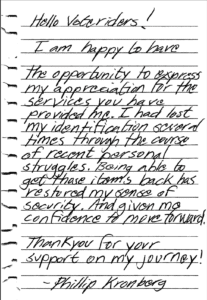 Hello Voteriders!
I am happy to have
the opportunity to express
my appreciation for the
services you have
provided me. I had lost
my identification several
times through the course
of recent personal
struggles. Being able to
get those items back has
restored my sense of
security. And given me
confidence to move forward.
Thankyou for your
support on my journey!
- Phillip Kronberg